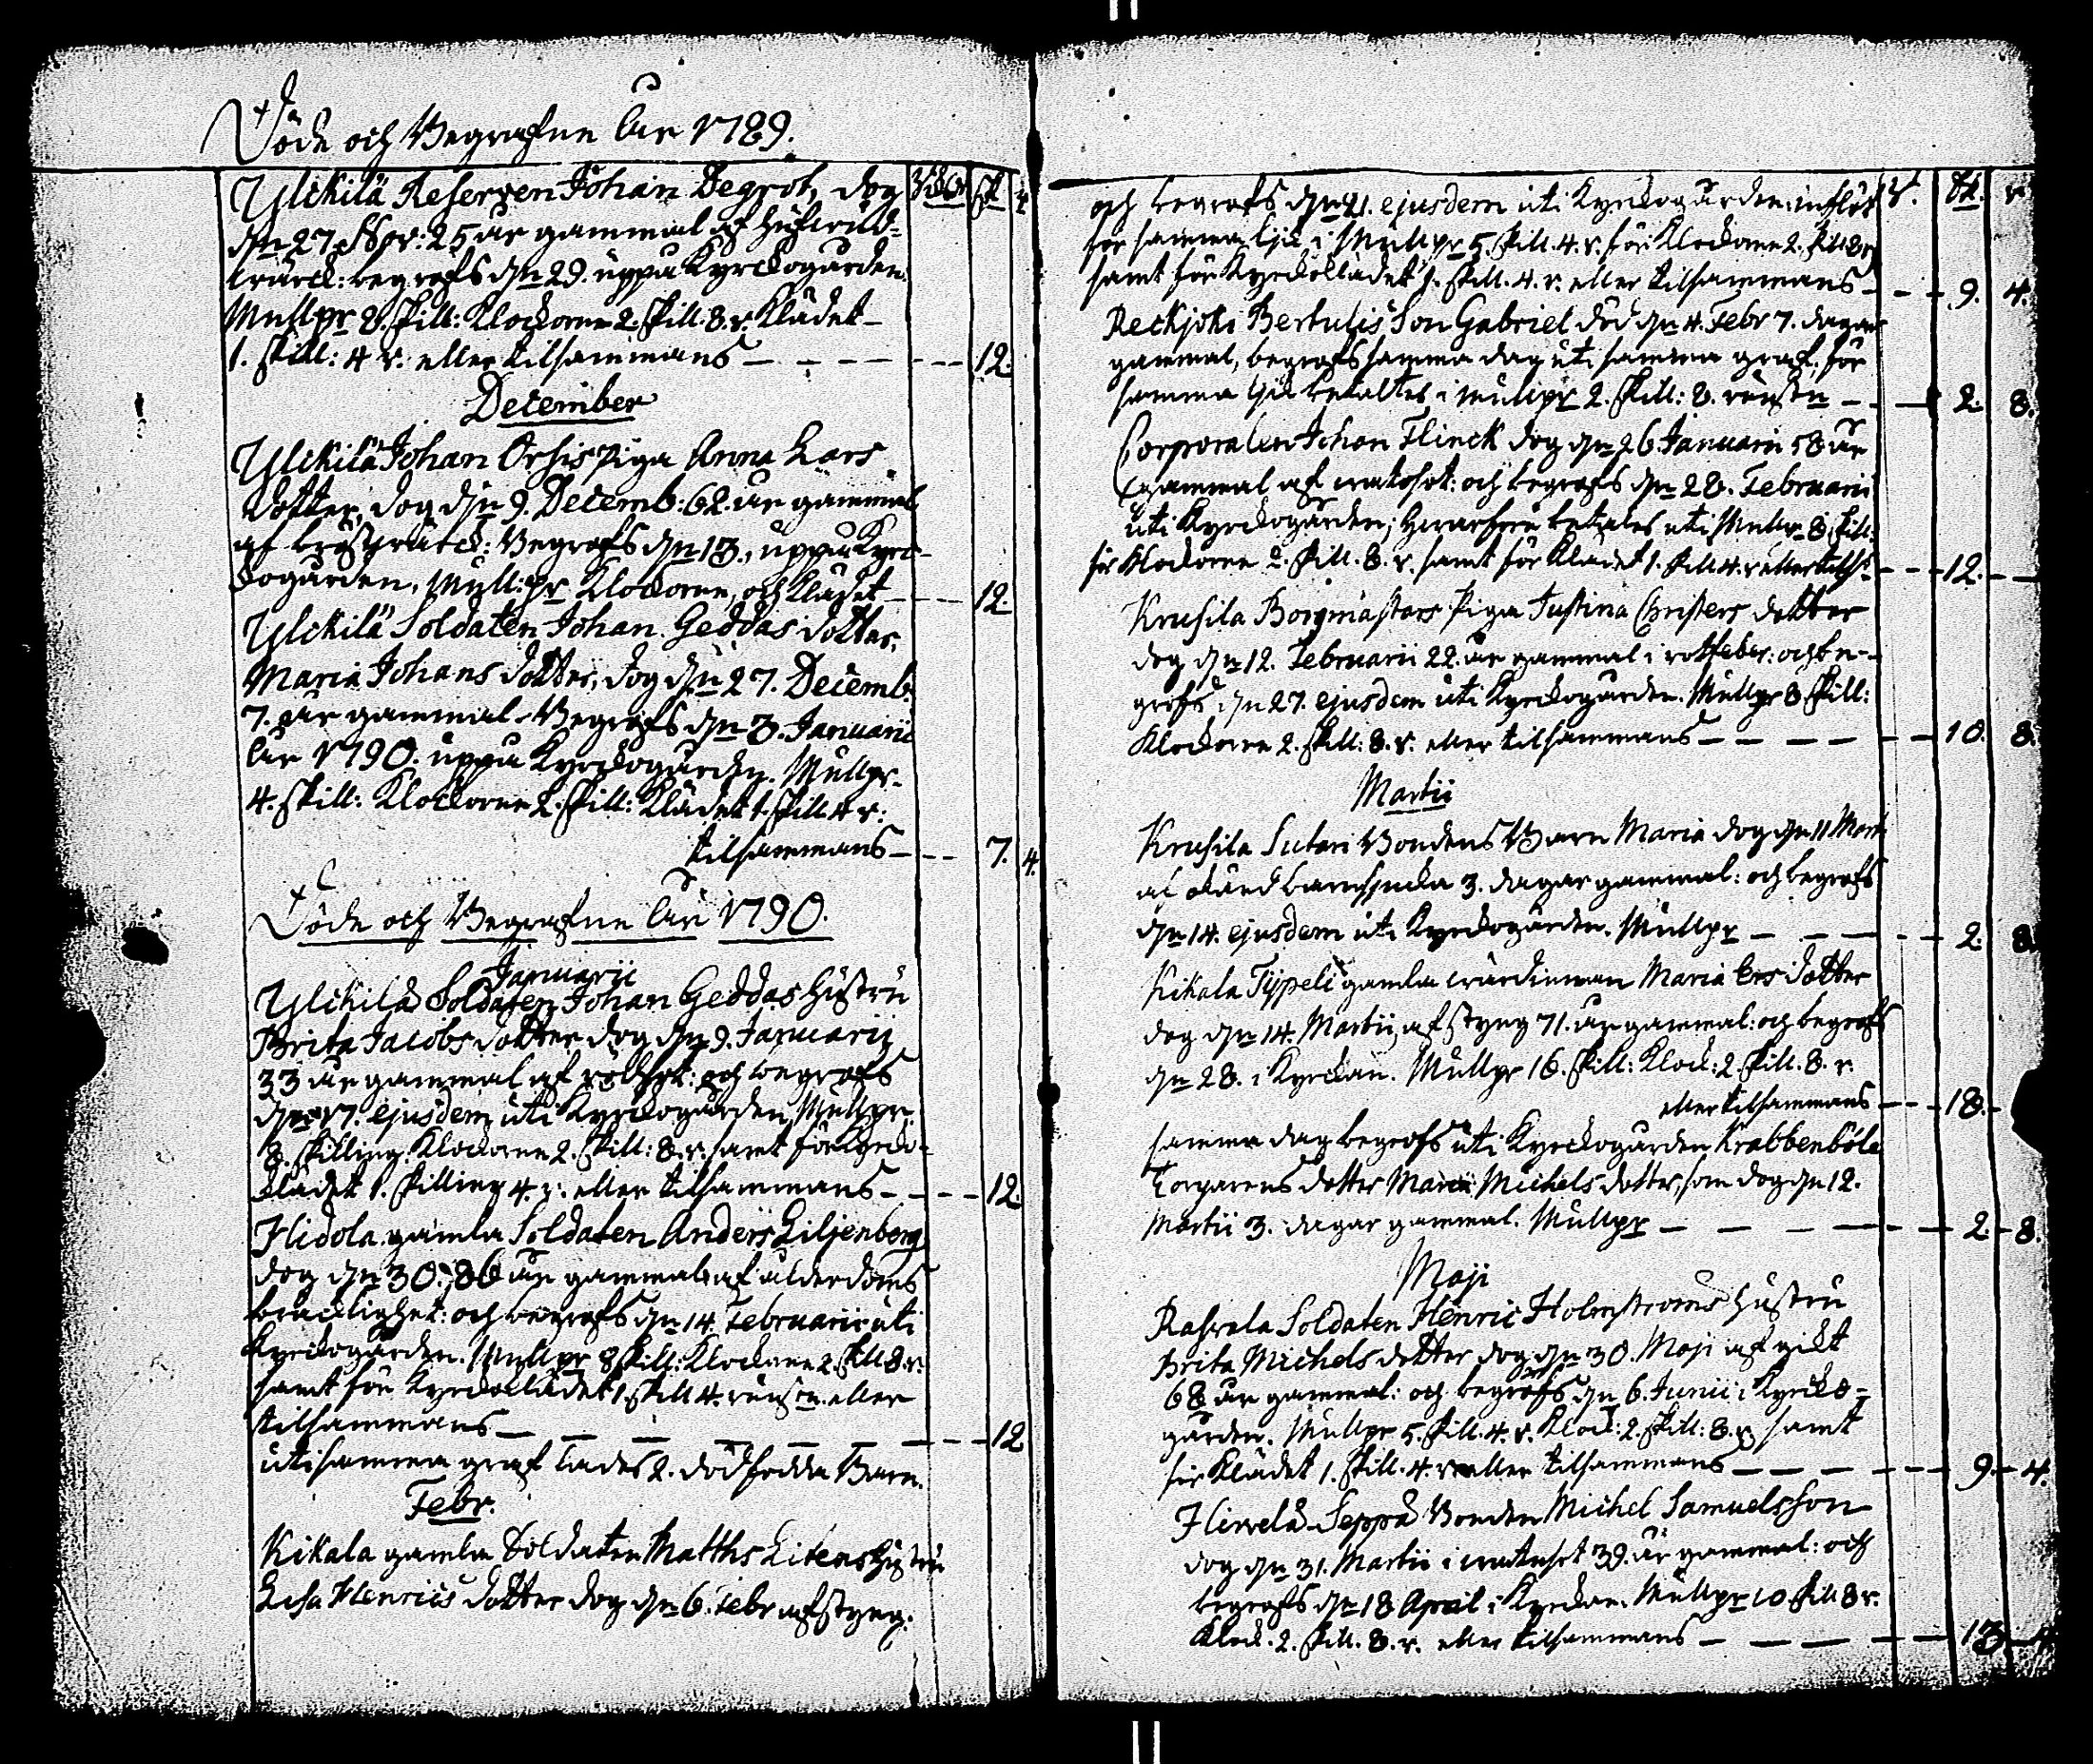 Döde och Begrafne År 1789.
Ylikilä Reserven Johan Degrot, dog
dn 27. Nov: 25 år gammal af hufvud-
wärck: begrofs dn 29. uppå Kyrckogården.
Mullpr 8. skill: Klockorne 2. skill. 8. r. Klädet
1. skill: 4 r. eller tilsammans — 12.
December
Ylikilä Johan Orhis Piga Anna Lars
dotter, dog dn 9. Decemb: 62 år gammal
af bröstwärck: Begrofs dn 13., uppå Kyrc-
kogården, Mull:pr Klockorne, och Klädet — 12
Ylikilä Soldaten Johan Geddas dotter,
Maria Johans dotter, dog dn 27. Decemb.
7. år gammal. Begrofs dn 3. Januarii
År 1790. uppå Kyrckogården. Mullpr.
4. skill: Klockorne 2. skill: Klädet 1. skill 4 r:
tilsammans — 7. 4.
Döde och Begrafne År 1790.
Januarii
Ylikilä Soldaten Johan Geddas Hustru
Brita Jacobs dotter dog dn 9. Januarii
33 år gammal af rödsot: och begrofs
dn 17. ejusdem uti Kyrckogården, Mullpr.
8. skilling. Klockorne 2. skill: 8. r. samt för Kyrcko-
klädet 1. skilling 4. r. eller tilsammans — 12.
Hidola gamla Soldaten Anders Liljenberg
dog dn 30. 86 år gammal af ålderdoms
bräcklighet: och begrofs dn 14. Februarii uti
Kyrckogården. Mullpr 8 skill: Klockorne 2. skill 8. r.
samt för Kyrckoklädet 1. skill 4. runsn. eller
tilsammans — 12
uti samma graf lades 2. dödfödda Barn.
Febr.
Kikala gamla Soldaten Matths Litens Hustru
Lisa Henrics dotter dog dn 6. Febr af styng.
och begrofs dn 21. ejusdem uti Kyrckogården: influt
för samma Lik i Mullpr 5. skill. 4. r. för Klockorne 2. skill 8 r
samt för Kyrckoklädet 1. skill. 4. r. eller tilsammans — 9. 4.
Reckjoki Bertulis Son Gabriel död dn 4. Febr 7. dagar
gammal, begrofs samma dag uti samma graf, för
samma Lik betaltes i Mullpr 2. skill: 8. runstn — 2. 8.
Corporalen Johan Flinck dog dn 26 Januarii 58 år
gammal af watusot: och begrofs dn 28. Februarii
uti Kyrckogården; Herarföre betales uti Mullpr 8. skill.
för Klockorne 2. skill. 8. r. samt för Klädet 1. skill 4. r eller tilhs — 12.
Krusila Borgmästars Piga Justina Christers dotter
dog dn 12. Februarii 22. år gammal i rötfeber: och be-
grofs dn 27. ejusdem uti Kyrckogården. Mullpr 8 skill:
Klockorne 2. skill: 8. r. eller tilsammans — 10. 8.
Martii
Krusila Sutari Bondens Barn Maria dog dn 11 Martii
af okänd barnsjucka 3. dagar gammal: och begrofs
dn 14. ejusdem uti Kyrckogården. Mullpr — 2. 8.
Kikala Typpeli gamla wärdinnan Maria Ers dotter
dog dn 14. Martii af styng 71. år gammal: och begrofs
dn 28. i Kyrckan. Mullpr 16. skill: Klock: 2. skill. 8. r.
eller tilsammans — 18.
samma dag begrofs uti Kyrckogården Krabbenböle
Torparens dotter Maria Michels dotter, som dog dn 12.
Martii 3. dagar gammal. Mullpr — 2. 8.
Maji
Rahvala Soldaten Henric Holmströms Hustru
Brita Michels dotter dog dn 30. Maji af gikt
68 år gammal: och begrofs dn 6. Junii i Kyrcko-
gården. Mullpr 5. skill. 4. r. Klock: 2. skill: 8. r samt
för Klädet 1. skill. 4. r eller tilsammans — 9. 4.
Hirvelä Seppä Bonden Michel Samuelsson
dog dn 31. Martii i watusot 39. år gammal: och
begrofs dn 18 April i Kyrckan. Mullpr 10 skill 8 r.
Klock. 2. skill. 8. r. eller tilsammans — 13 4